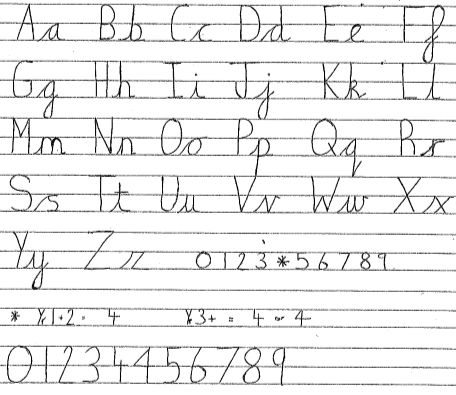 Aa Bb Cc Dd Ee Ff
Gg Hh Ii Jj Kk Ll
Mm Nn Oo Pp Qq Rr
Ss Tt Uu Vv Ww Xx
Yy Zz 0123*56789
* 1+2= 4 3+ = 4 or 4
01234456789